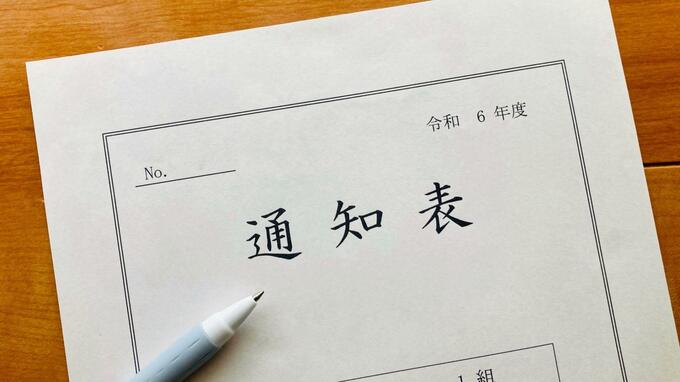 令和 6 年度
No.
通知表
1 組